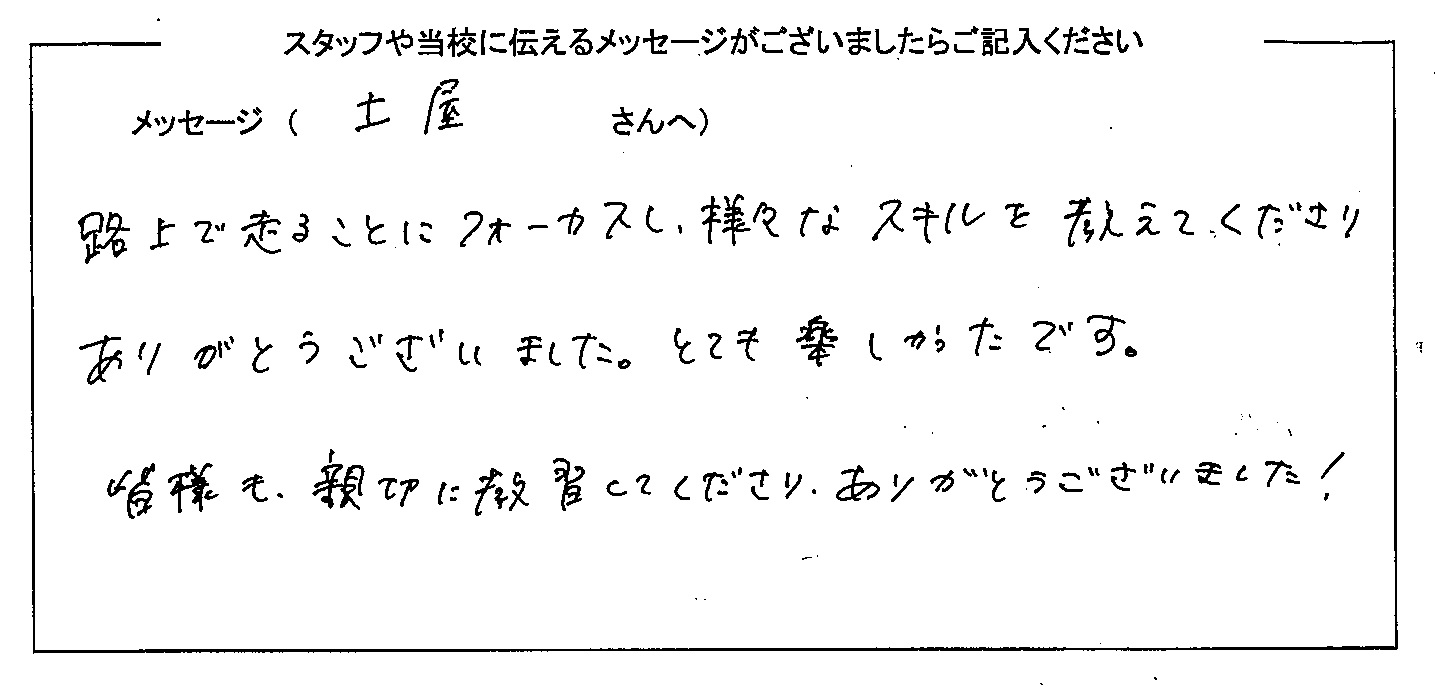 スタッフや当校に伝えるメッセージがございましたらご記入ください
メッセージ( 土屋 さんへ)
路上で走ることにフォーカスし、様々なスキルを教えてくださり
ありがとうございました。とても楽しかったです。
皆様も、親切に教習してくださり、ありがとうございました!